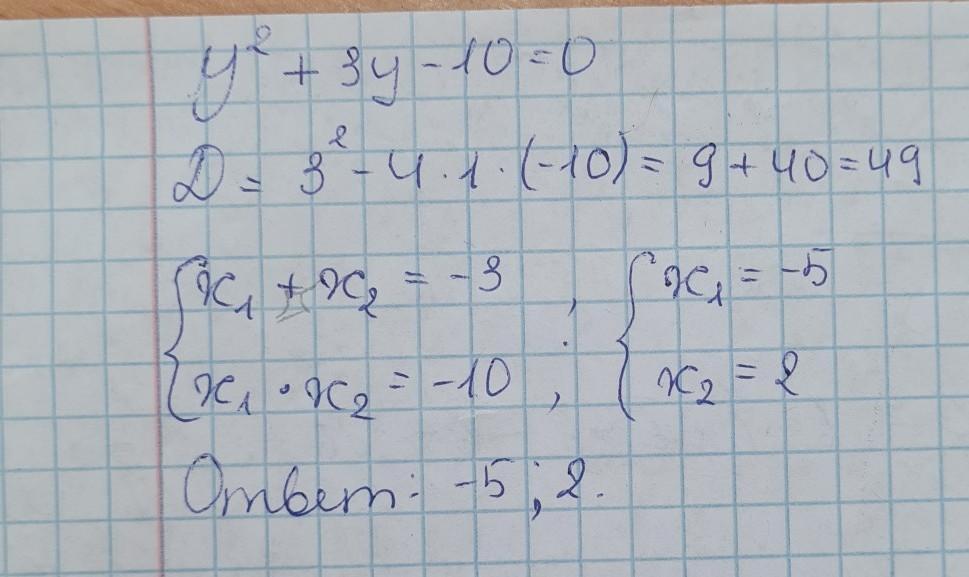 y² + 3y - 10 = 0
D = 3² - 4 · 1 · (-10) = 9 + 40 = 49
{ x₁ + x₂ = -3 , { x₁ = -5
{ x₁ · x₂ = -10 , { x₂ = 2
Ответ: -5 ; 2.